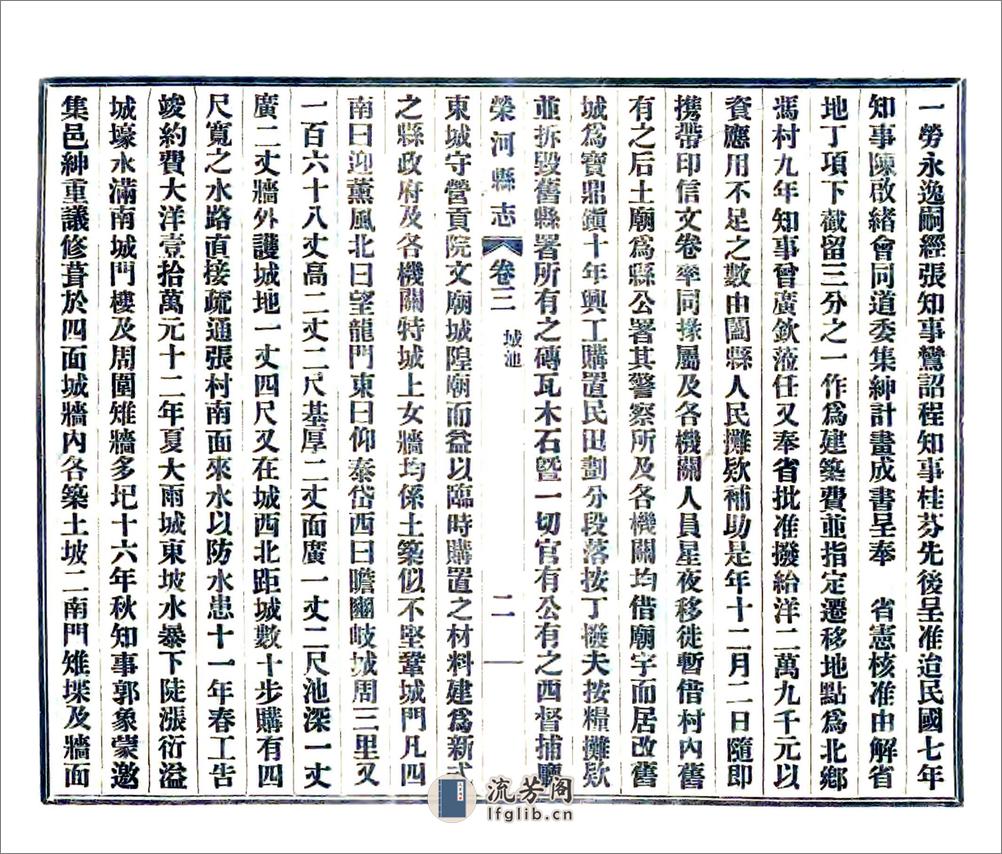 一勞永逸嗣經張知事鸞詔程知事桂芬先後呈准迨民國七年
知事陳啟緒會同道委集紳計畫成書呈奉　省憲核准由解省
地丁項下截留三分之一作爲建築費並指定遷移地點爲北鄉
馮村九年知事曾廣欽蒞任又奉省批准撥給洋二萬九千元以
資應用不足之數由闔縣人民攤欵補助是年十二月二日隨即
携帶印信文卷率同掾屬及各機關人員星夜移徙暫借村內舊
有之后土廟爲縣公署其警察所及各機關均借廟宇而居改舊
城爲寶鼎鎭十年興工購置民田劃分段落按丁撥夫按糧攤欵
並拆毀舊縣署所有之磚瓦木石暨一切官有公有之西督捕廳
榮河縣志　卷三　城池　二
東城守營貢院文廟城隍廟而益以臨時購置之材料建爲新式
之縣政府及各機關特城上女牆均係土築似不堅鞏城門凡四
南曰迎薰風北曰望龍門東曰仰泰岱西曰瞻豳岐城周三里又
一百六十八丈高二丈二尺基厚二丈面廣一丈二尺池深一丈
廣二丈牆外護城地一丈四尺又在城西北距城數十步購有四
尺寬之水路直接疏通張村南面來水以防水患十一年春工告
竣約費大洋壹拾萬元十二年夏大雨城東坡水暴下陡漲衍溢
城壕水滿南城門樓及周圍雉牆多圮十六年秋知事郭象蒙邀
集邑紳重議修葺於四面城牆內各築土坡二南門雉堞及牆面
流芳阁
lfglib.cn